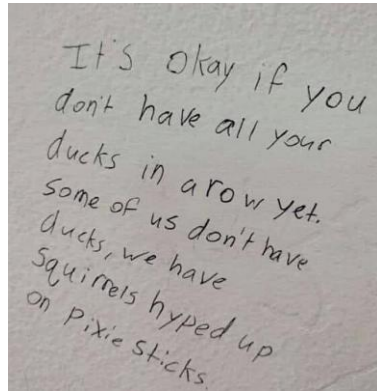 It's okay if you
don't have all your
ducks in a row yet.
Some of us don't have
ducks, we have
Squirrels hyped up
on Pixie Sticks.